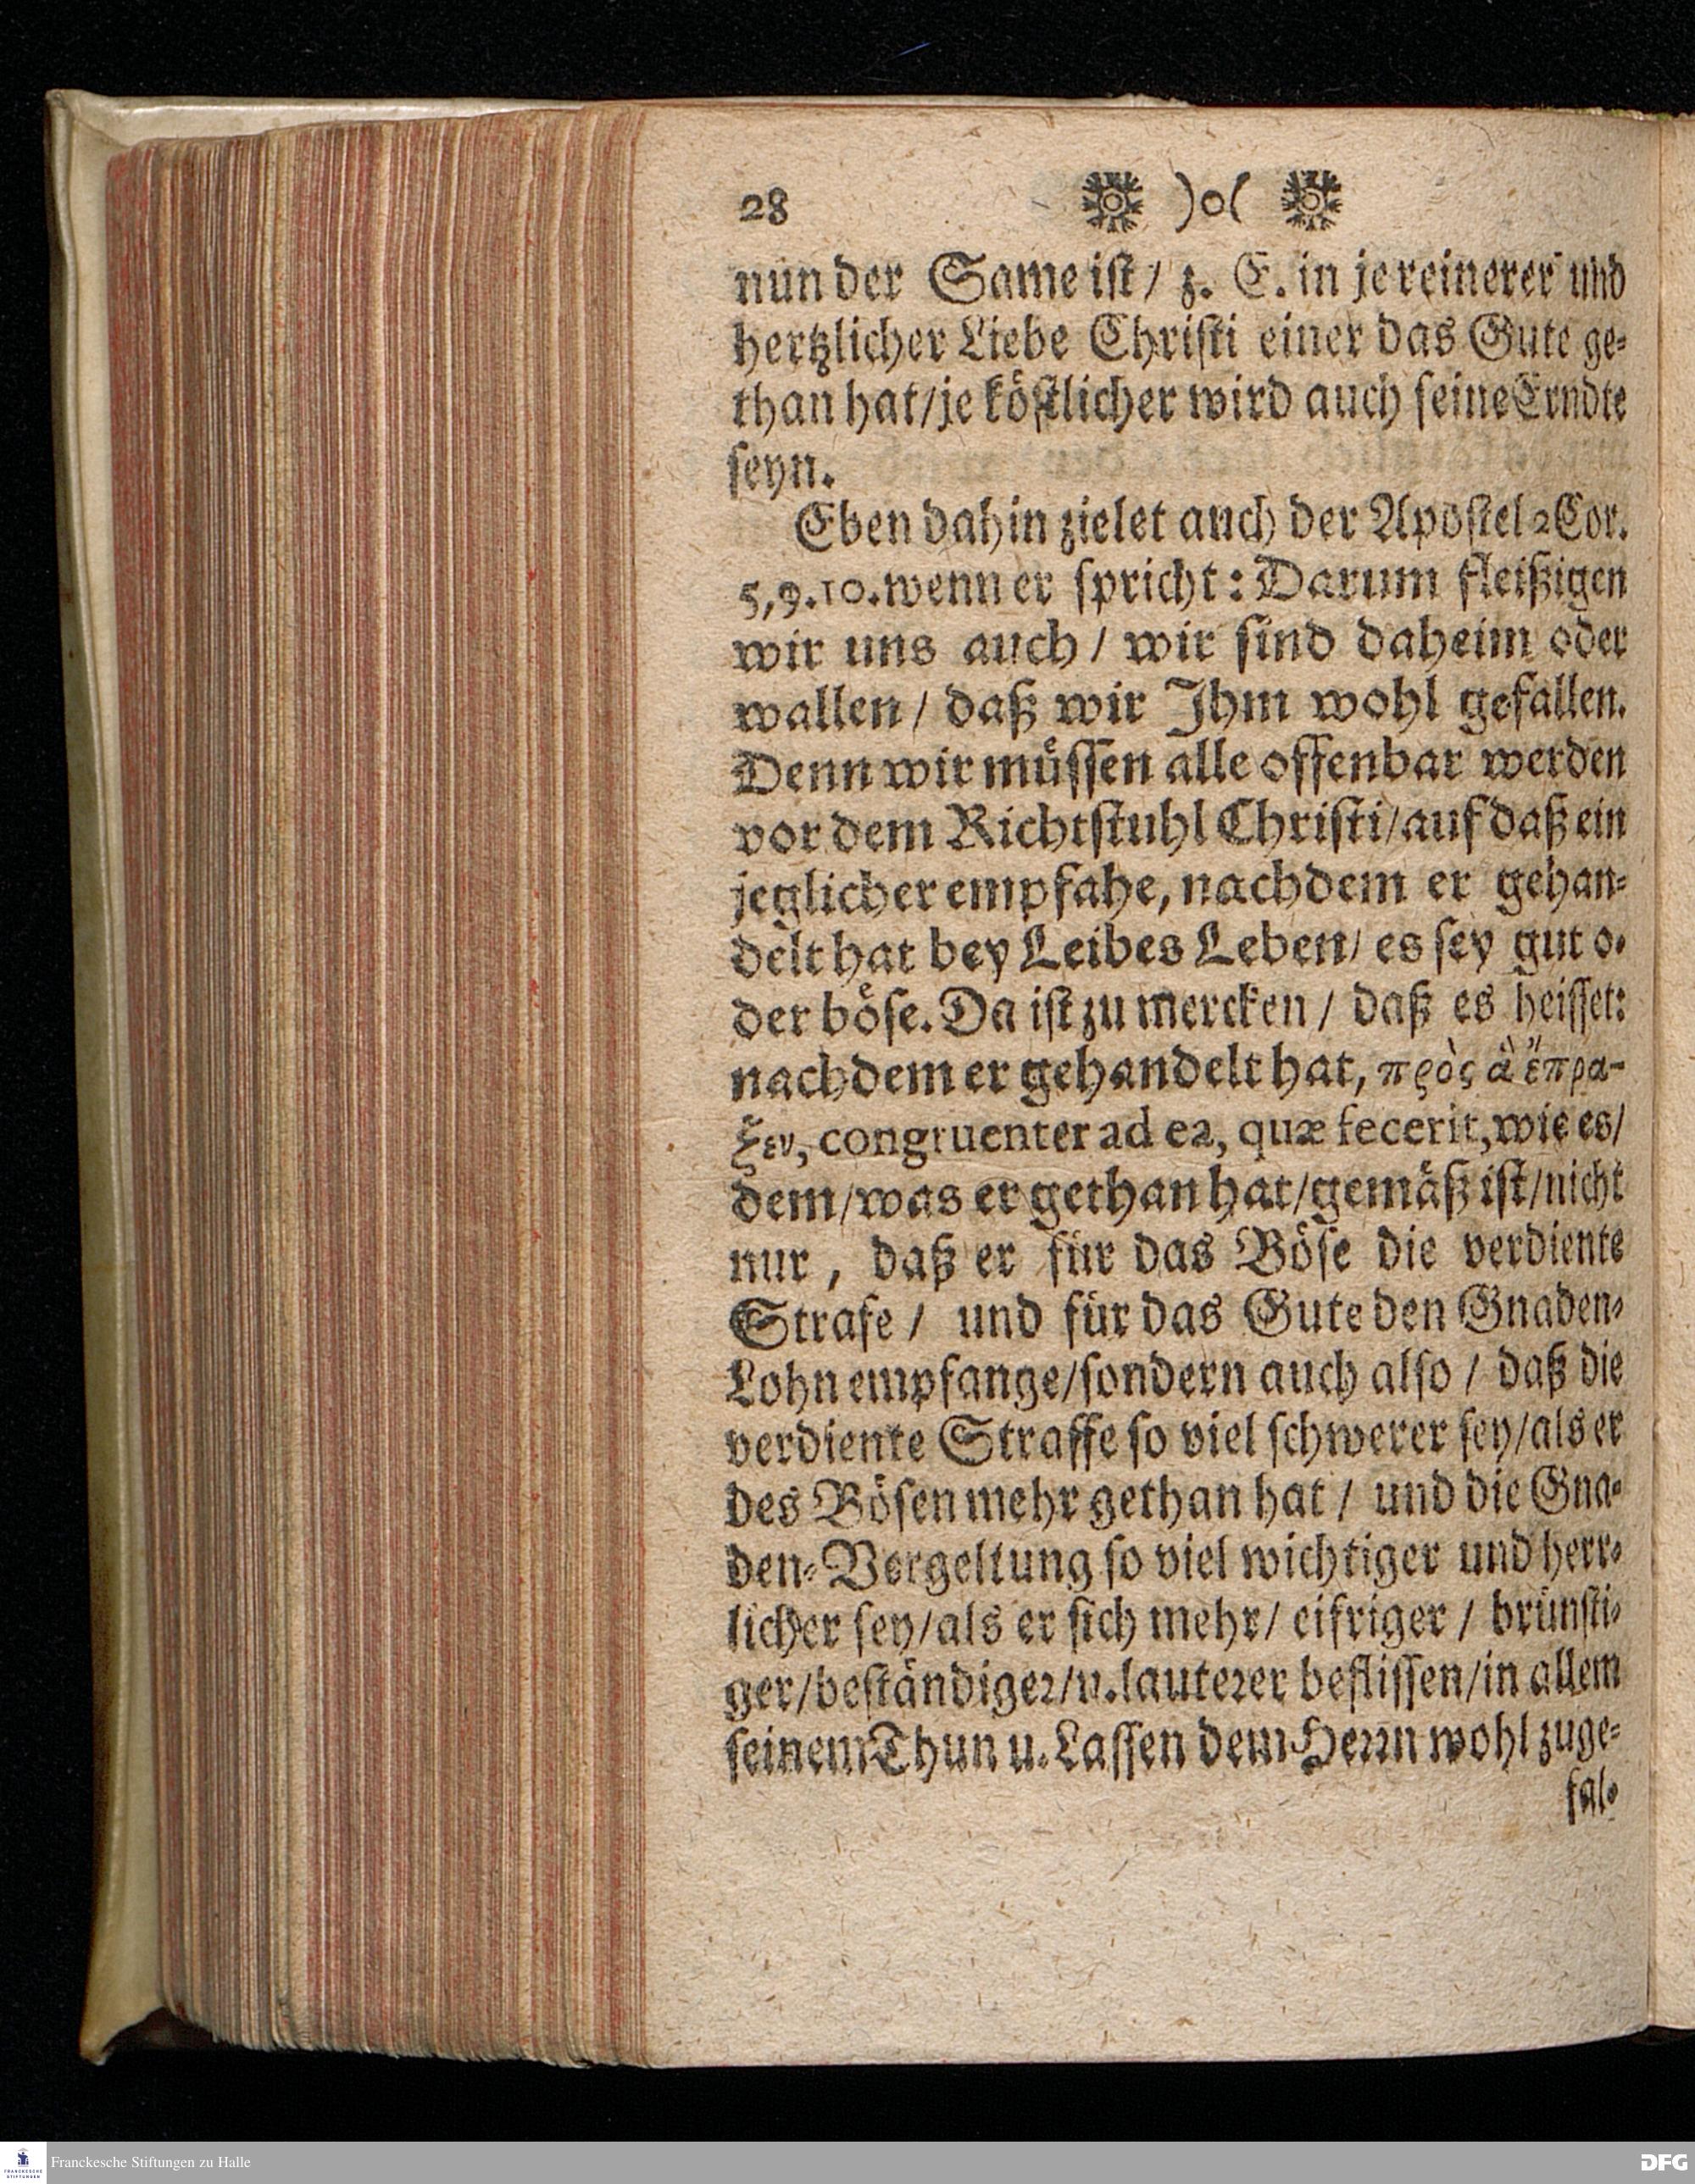 28 )o(
nun der Same ist / z. E. in je reinerer und
hertzlicher Liebe Christi einer das Gute ge-
than hat/je köstlicher wird auch seine Erndte
seyn.
Eben dahin zielet auch der Apostel 2 Cor.
5,9.10. wenn er spricht: Darum fleißigen
wir uns auch / wir sind daheim oder
wallen / daß wir Ihm wohl gefallen.
Denn wir müssen alle offenbar werden
vor dem Richtstuhl Christi/auf daß ein
jeglicher empfahe, nachdem er gehan-
delt hat bey Leibes Leben/ es sey gut o-
der böse. Da ist zu mercken / daß es heisset:
nachdem er gehandelt hat, πρὸς ἃ ἔπρα-
ξεν, congruenter ad ea, quæ fecerit, wie es/
dem/was er gethan hat/gemäß ist/nicht
nur , daß er für das Böse die verdiente
Strafe / und für das Gute den Gnaden-
Lohn empfange/sondern auch also / daß die
verdiente Straffe so viel schwerer sey/als er
des Bösen mehr gethan hat / und die Gna-
den-Vergeltung so viel wichtiger und herr-
licher sey/als er sich mehr/ eifriger / brünsti-
ger/beständiger/u. lauterer beflissen/in allem
seinem Thun u. Lassen dem Herrn wohl zuge-
fal-
FRANCKESCHE STIFTUNGEN
Franckesche Stiftungen zu Halle
DFG